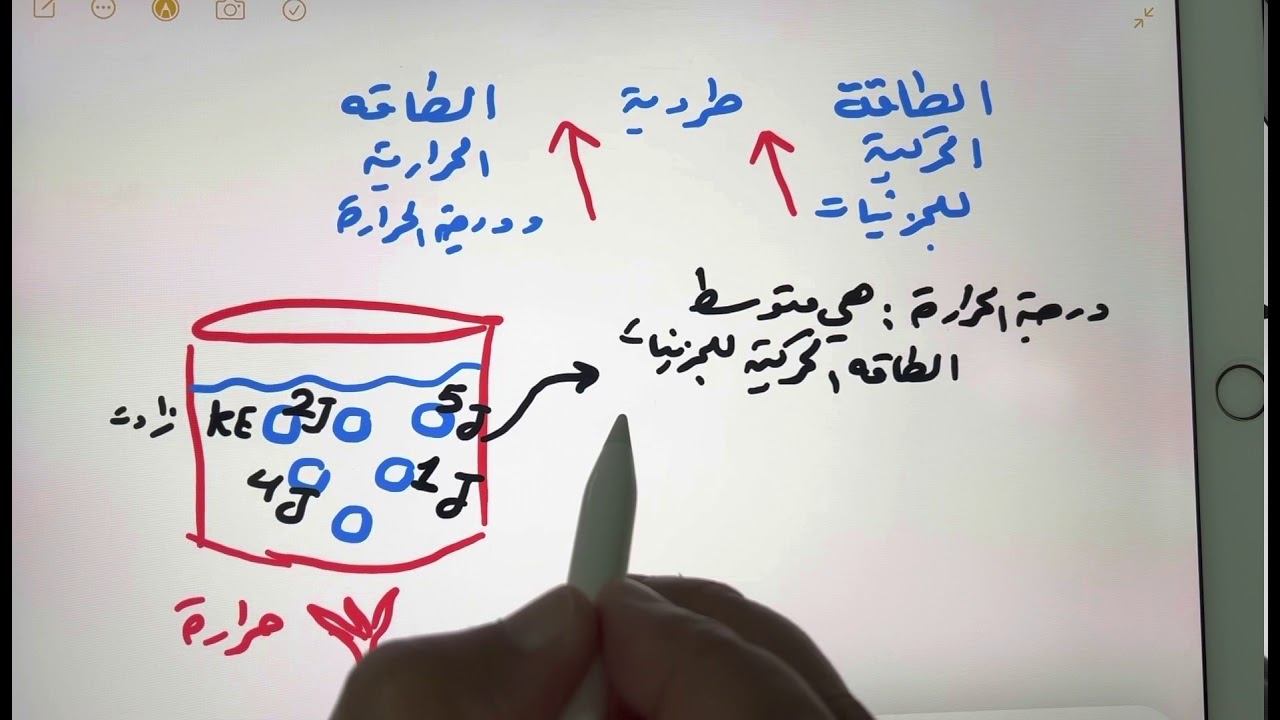 الطاقة
الحركية
للجزئيات
طردية
الطاقه
الحرارية
ودرجة الحرارة
درجة الحرارة : هي متوسط
الطاقه الحركية للجزئيات
زادت
KE 2J 5J
4J 1J
حرارة